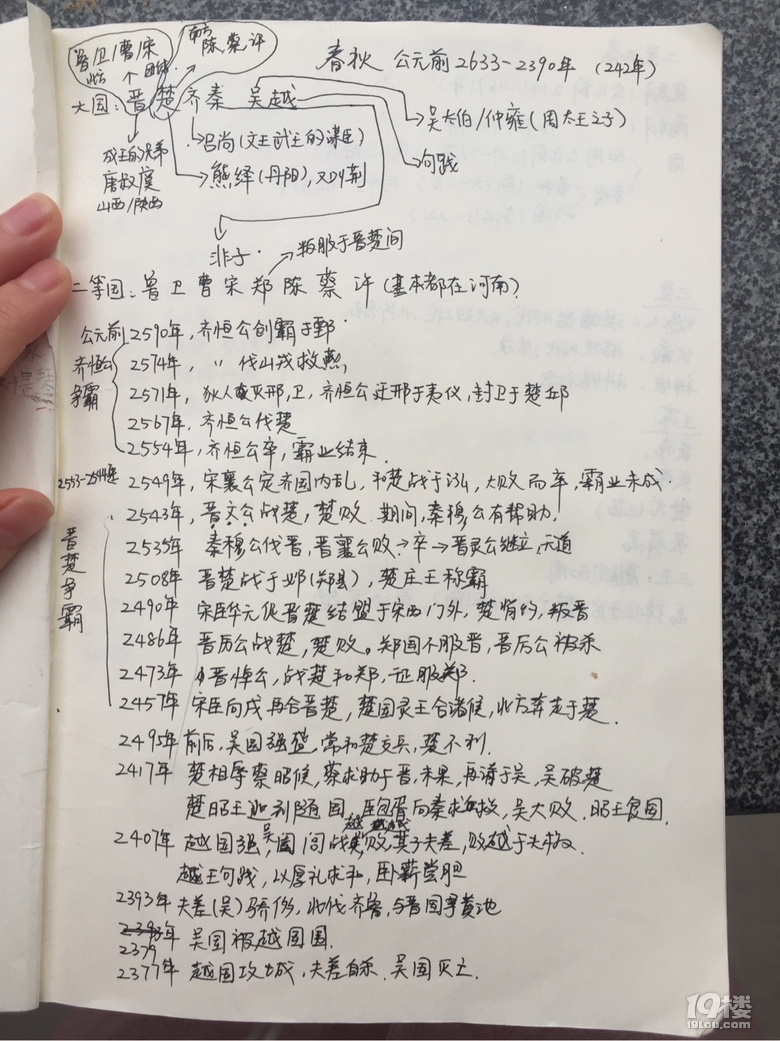 鲁卫曹宋
陈蔡许
春秋 公元前2633-2390年 (242年)
大国:晋楚齐秦 吴越
吴太伯/仲雍(周太王之子)
吕尚(文王武王的谋臣)
句践
成王的兄弟
唐叔虞
山西/陕西
熊绎(丹阳),又叫荆
非子·
叛服于晋楚间
二等国:鲁卫曹宋郑陈蔡许(基本都在河南)
公元前2590年,齐恒公创霸于鄄
齐恒公
争霸
2574年, 〃 伐山戎救燕,
2571年,狄人灭邢,卫,齐恒公迁邢于夷仪,封卫于楚邱
2567年,齐恒公伐楚
2554年,齐恒公卒,霸业结束.
2549年,宋襄公定齐国内乱,和楚战于泓,大败而卒,霸业未成
晋楚争霸
2543年,晋文公战楚,楚败.期间,秦穆公有帮助,
2535年 秦穆公伐晋,晋襄公败→卒→晋灵公继立,无道
2508年 晋楚战于邲(郑县),楚庄王称霸
2490年 宋臣华元促晋楚结盟于宋西门外,楚背约,叛晋
2486年 晋厉公战楚,楚败。郑国不服晋,晋厉公被杀
2473年 晋悼公,战楚和郑,征服郑.
2457年 宋臣向戌再合晋楚,楚国灵王合诸侯,北方奔走于楚.
2495年前后,吴国强盛,常和楚交兵,楚不利.
2417年 楚相辱蔡昭侯,蔡求助于晋,未果,再请于吴,吴破楚
楚昭王逃到随国,包胥向秦求救,吴大败.昭王复国.
2407年 越国强,吴阖闾战越,败,其子夫差,败越于夫椒.
越王句践,以厚礼求和,卧薪尝胆
2393年 夫差(吴)骄侈,北伐齐鲁,与晋国争黄池
2379年 吴国被越国围.
2377年 越国攻城,夫差自杀.吴国灭亡.
19楼
19lou.com